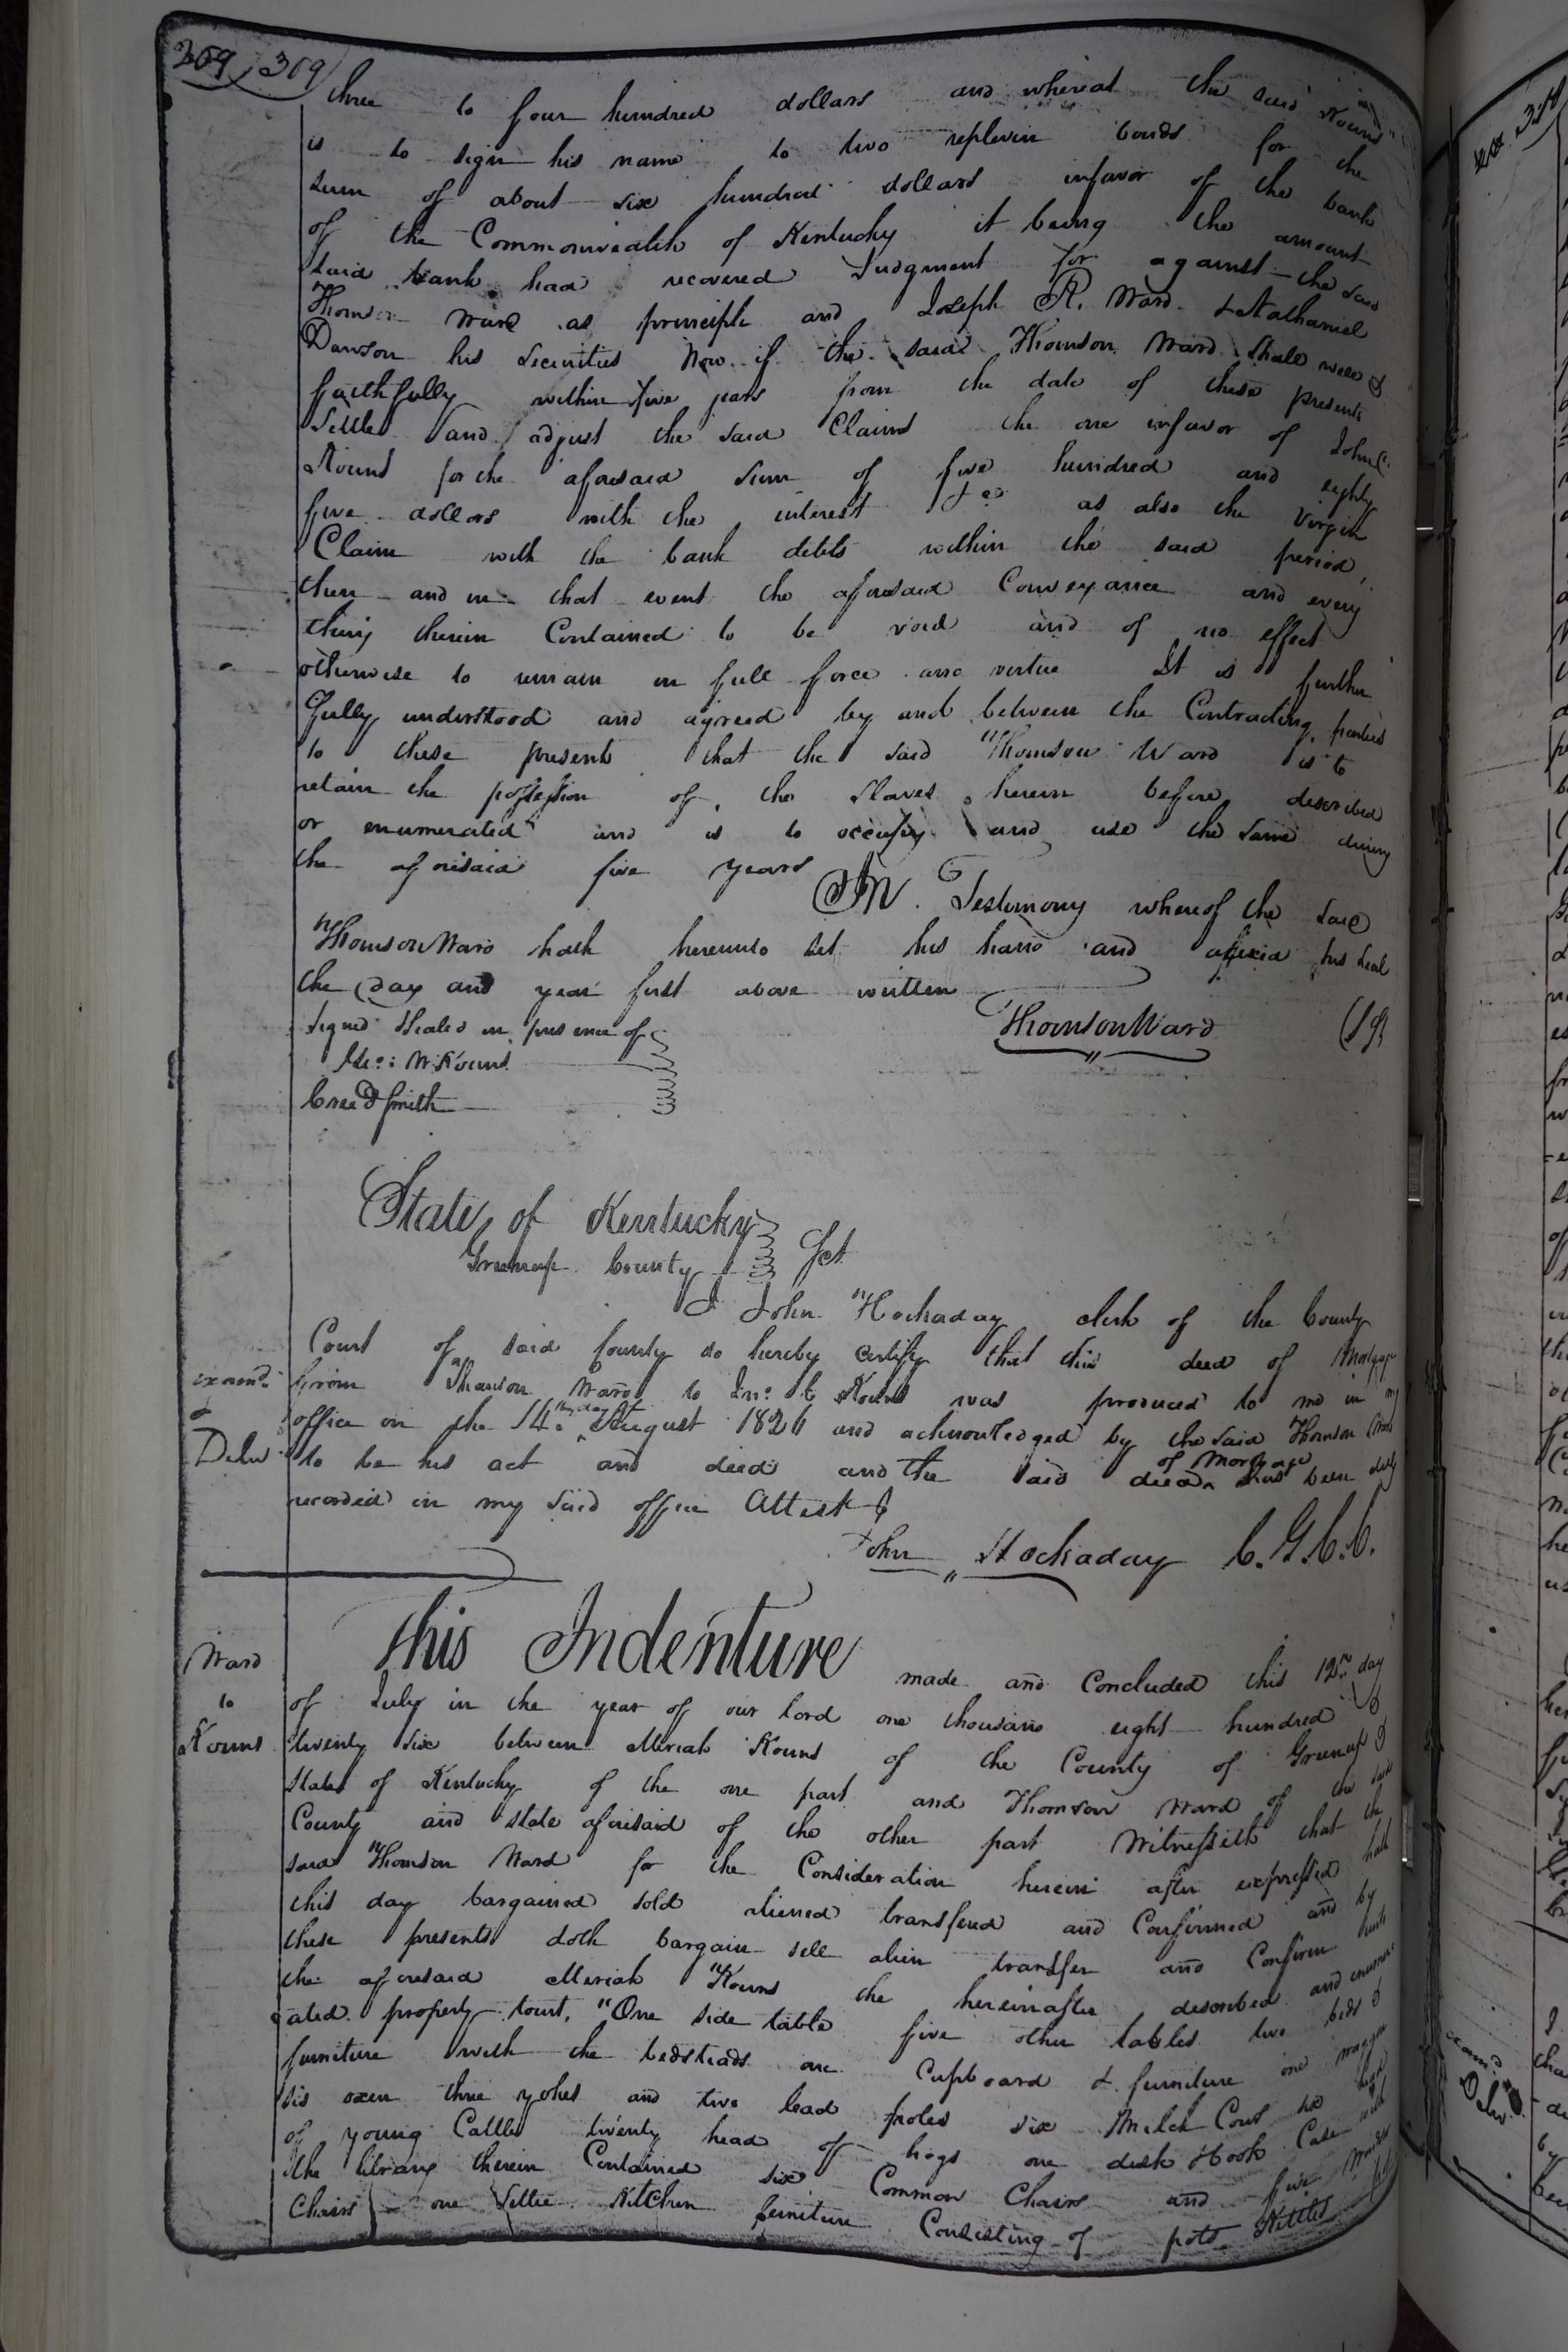 309 309
three to four hundred dollars and whereas the said Kouns
is to sign his name to two replevin bonds for the
sum of about six hundred dollars infavor of the bank
of the Commonwealth of Kentucky it being the amount
said bank had recovered Judgment for against the said
Thomson Ward as principle and Joseph R. Ward & Nathaniel
Dawson his Securities Now if the said Thomson Ward Shall well &
faithfully within five years from the date of these presents
Settle and adjust the said Claims the one infavor of John C.
Kouns for the aforesaid sum of five hundred and eighty
five dollars with the interest &c as also the Virgin
Claim with the bank debts within the said period,
then and in that event the aforesaid Conveyance and every
thing therein Contained to be void and of no effect
otherwise to remain in full force and virtue It is further
fully understood and agreed by and between the Contracting parties
to these presents that the said Thomson Ward is to
retain the possession of the Slaves herein before described
or enumerated and is to occupy and use the same during
the aforisaid five years
In Testimony whereof the said
Thomson Ward hath hereunto set his hand and affixed his seal
the day and year first above written
Signed Sealed in presence of
Thomson Ward
Geo: W. Kouns
Creed Smith
State of Kentucky
Greenup County Sct
I John Hockaday clerk of the County
Court of said County do hereby certify that this deed of Mortgage
from Thomson Ward to Jno. C Kouns was produced to me in my
examd.
office on the 14th. day of August 1826 and acknowledged by the said Thomson Ward
&
Deld
to be his act and deed and the said deed of Mortgage has been duly
recorded in my said office Attest
John Hockaday C.G.C.C.
This Indenture made and Concluded this 12th day
Ward
to
Kouns
of July in the year of our lord one thousand eight hundred &
twenty six between Meriah Kouns of the County of Greenup &
State of Kentucky of the one part and Thomson Ward of the said
County and state aforisaid of the other part Witnesseth that the
said Thomson Ward for the Consideration herein after expressed hath
this day bargained sold aliened transfered and Confirmed and by
these presents doth bargain sell alien transfer and Confirm unto
the aforesaid Meriah Kouns the hereinafter described and enumer
ated property towit, "One side table five other tables two beds &
furniture with the bedsteads one Cupboard & furniture one waggon
six oxen three yokes and two lead poles six Milch Cows six head
of young Cattle twenty head of hogs one desk & Book Case with
the library therein Contained six Common Chairs and five Windsor
Chairs one Settee Kitchen furniture Consisting of pots Kittles
examd.
Deld.